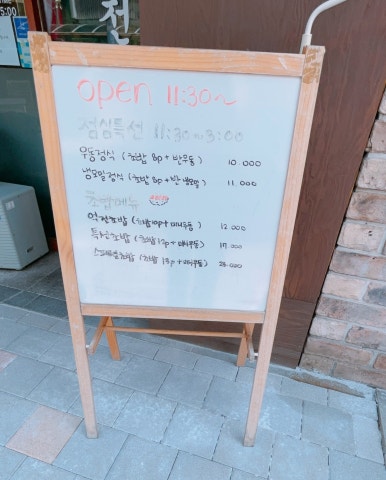 전
open 11:30~
점심특선 11:30~3:00
우동정식 (초밥 8p + 반우동) 10.000
냉모밀정식 (초밥 8p + 반 냉모밀) 11.000
초밥메뉴
역전초밥 (초밥10p + 미니우동) 12.000
특선초밥 (초밥 12p + 미니우동)
스페셜초밥 (초밥 15p + 미니우동)